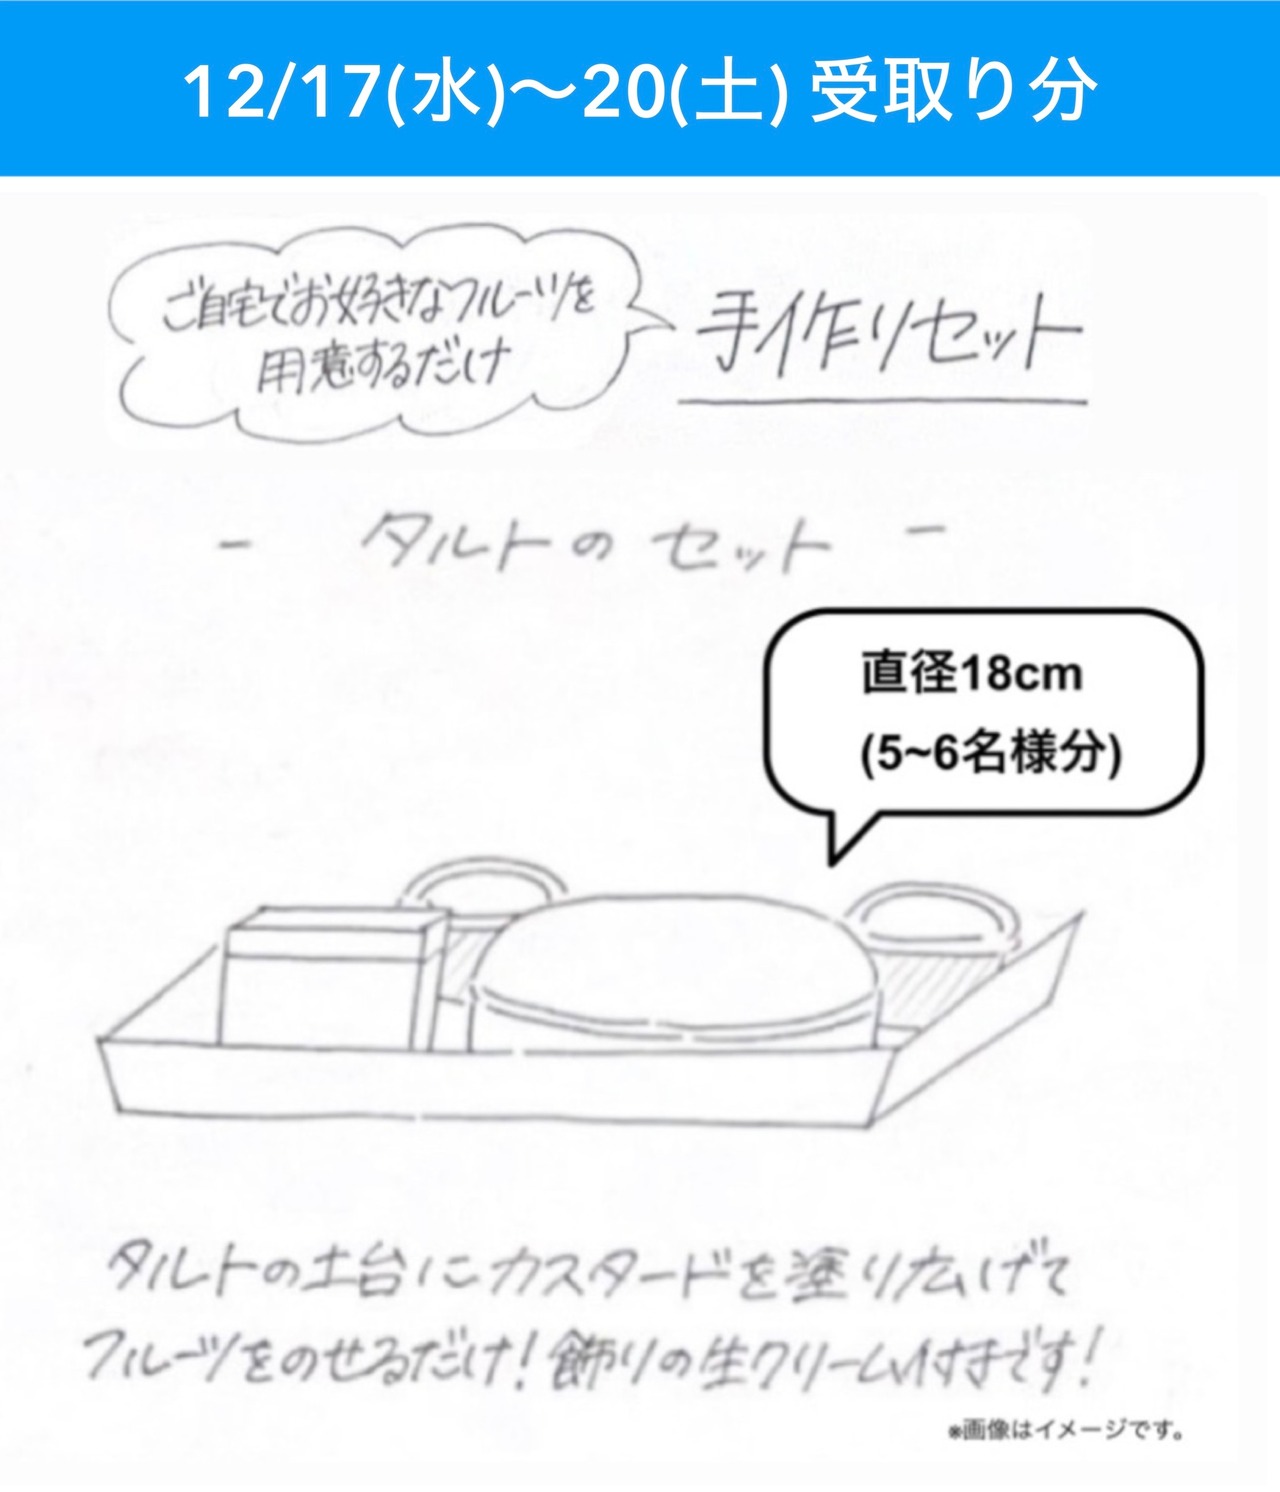 12/17(水)～20(土) 受取り分
ご自宅でお好きなフルーツを
用意するだけ
手作りセット
- タルトのセット -
直径18cm
(5~6名様分)
タルトの土台にカスタードを塗り広げて
フルーツをのせるだけ！飾りの生クリーム付きです！
※画像はイメージです。